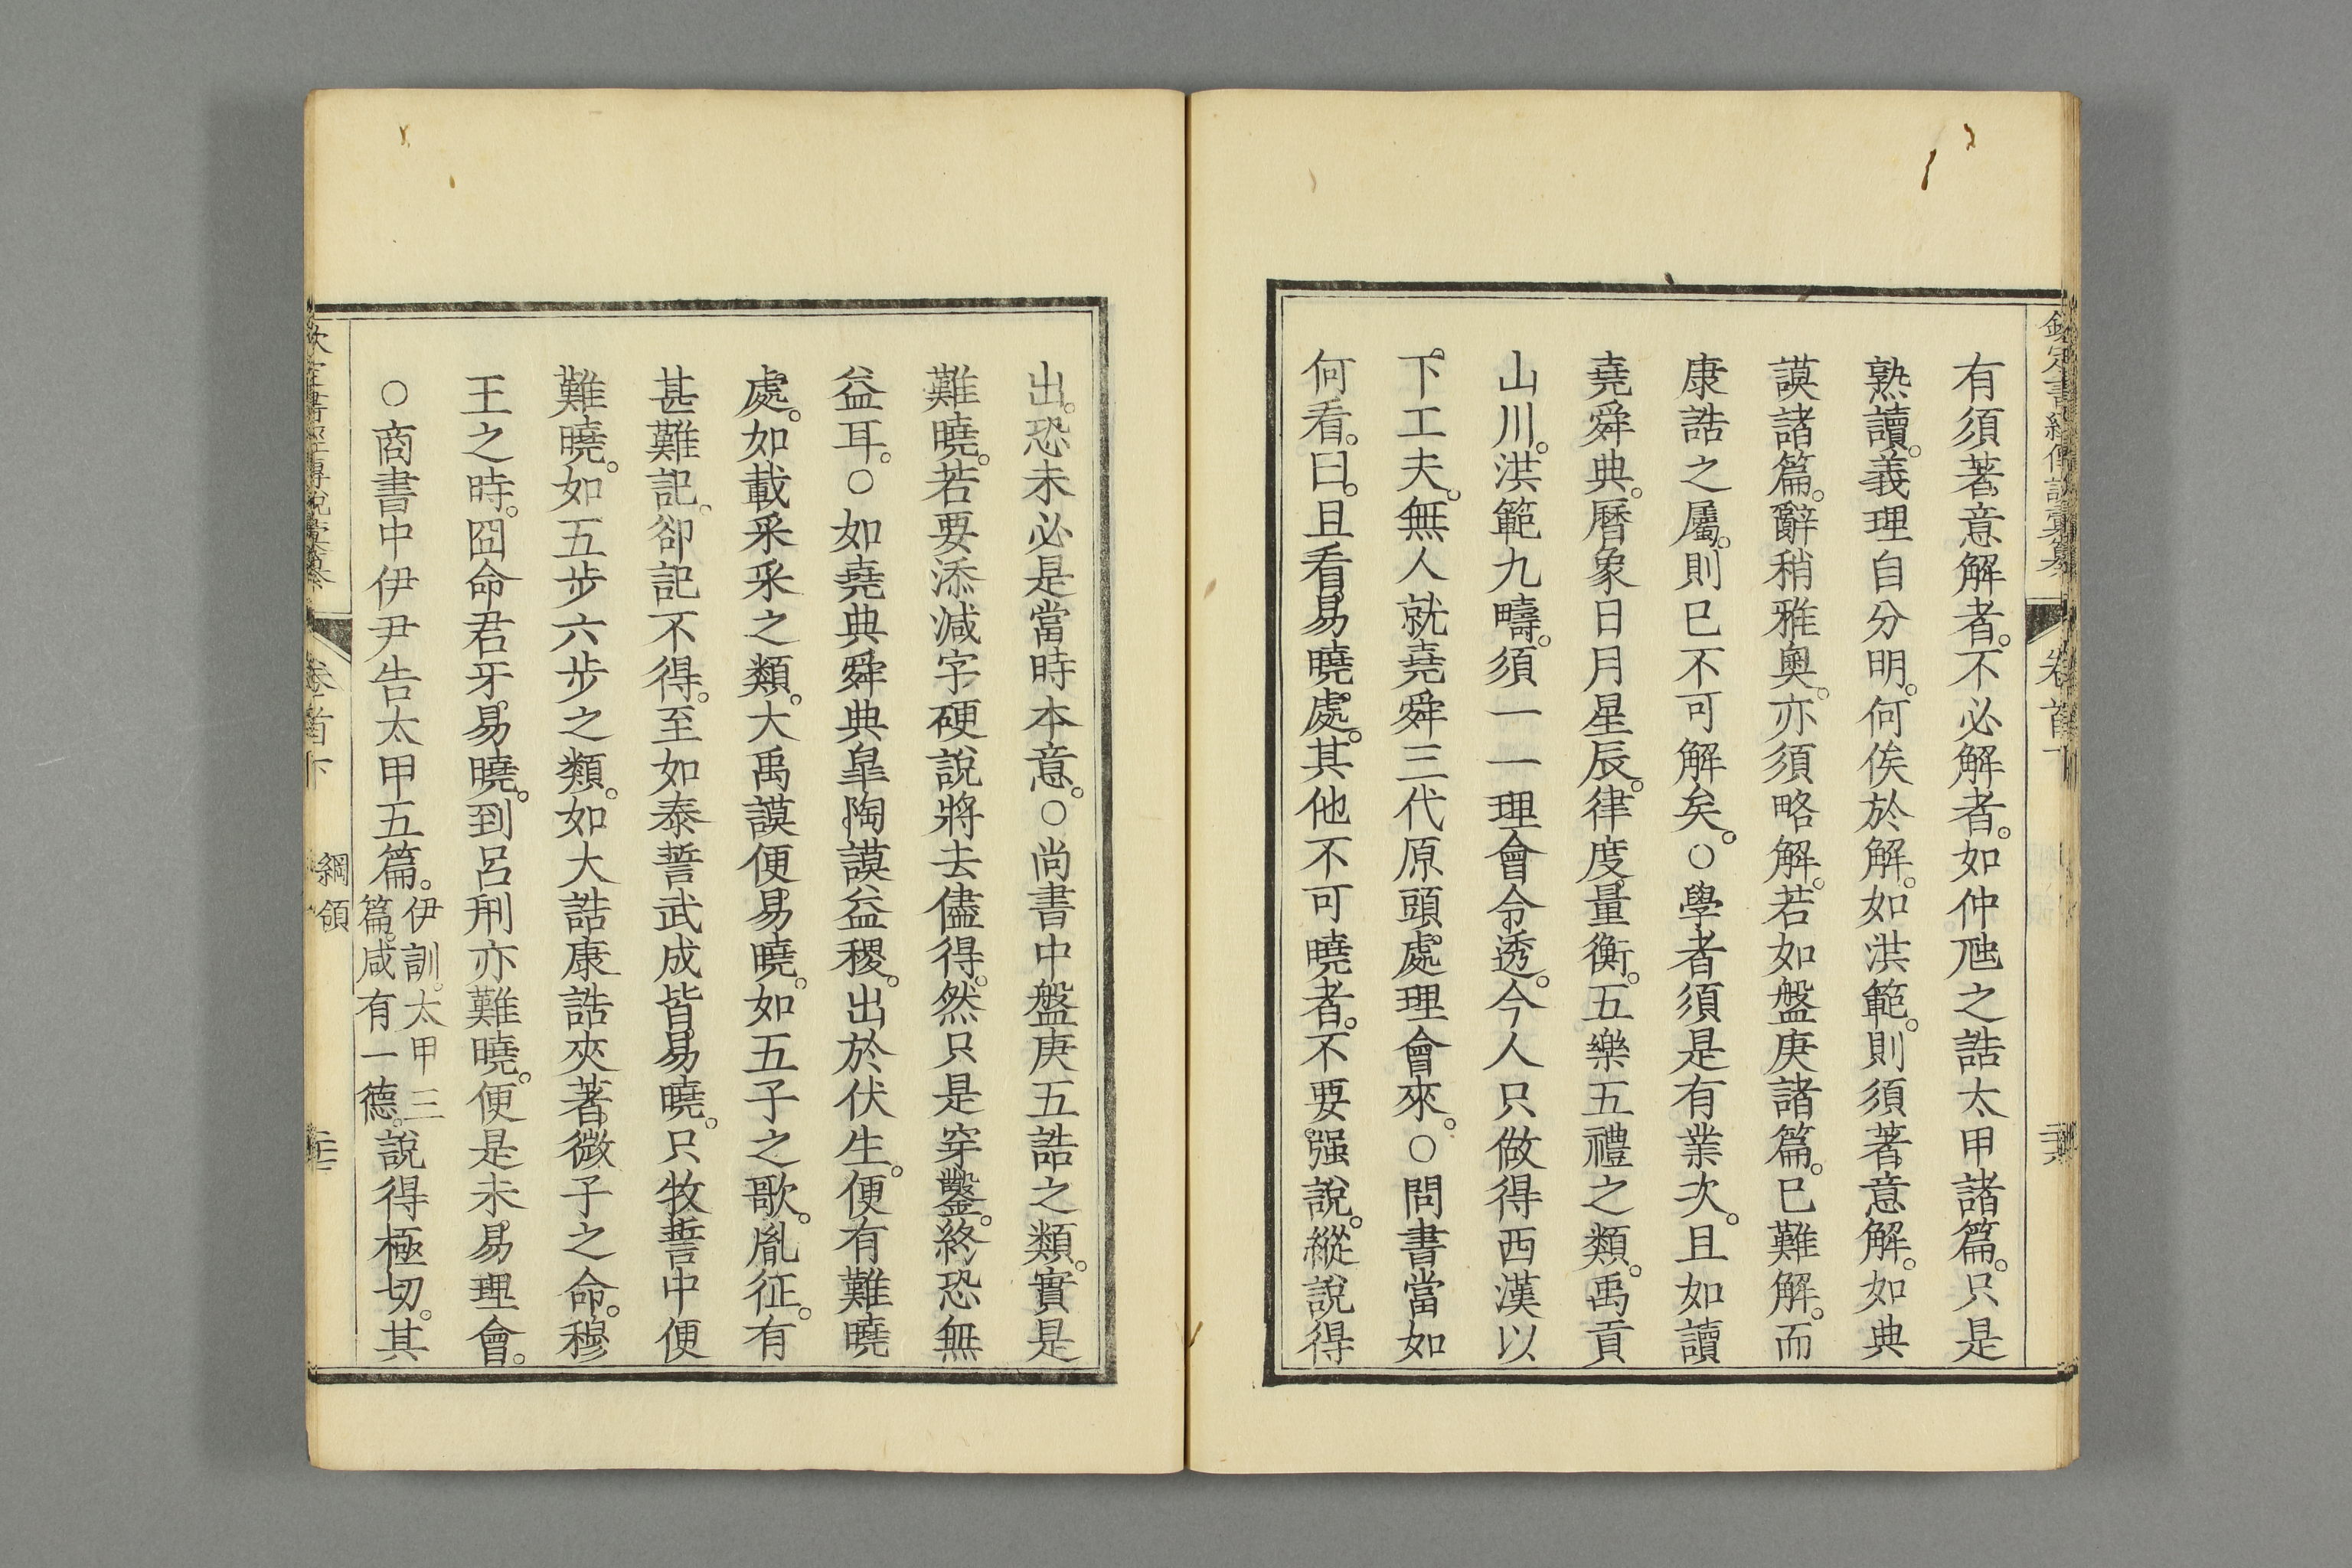 欽定書經傳說彙纂 卷首下
有須著意解者。不必解者。如仲虺之誥太甲諸篇。只是
熟讀。義理自分明。何俟於解。如洪範。則須著意解。如典
謨諸篇。辭稍雅奧。亦須略解。若如盤庚諸篇。已難解。而
康誥之屬。則已不可解矣。○學者須是有業次。且如讀
堯舜典。曆象日月星辰。律度量衡。五樂五禮之類。禹貢
山川。洪範九疇。須一一理會令透。今人只做得西漢以
下工夫。無人就堯舜三代原頭處理會來。○問書當如
何看。曰。且看易曉處。其他不可曉者。不要强說。縱說得
出。恐未必是當時本意。○尚書中盤庚五誥之類。實是
難曉。若要添減字硬說將去儘得。然只是穿鑿。終恐無
益耳。○如堯典舜典皐陶謨益稷。出於伏生。便有難曉
處。如載采采之類。大禹謨便易曉。如五子之歌。胤征。有
甚難記。卻記不得。至如泰誓武成皆易曉。只牧誓中便
難曉。如五步六步之類。如大誥康誥夾著微子之命。穆
王之時。冏命君牙。易曉。到呂刑亦難曉。便是未易理會。
○商書中伊尹告太甲五篇。伊訓。太甲三篇。咸有一德。說得極切。其
欽定書經傳說彙纂 卷首下 綱領